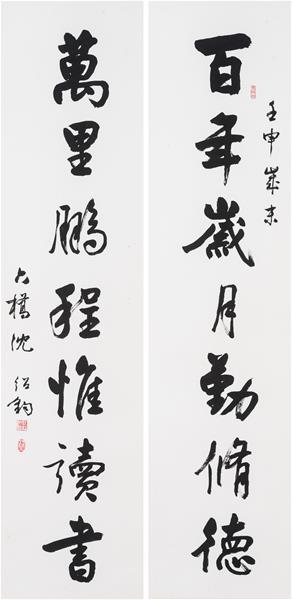 百年歲月勤脩德
壬申歲末
萬里鵬程惟讀書
沈紹鈞